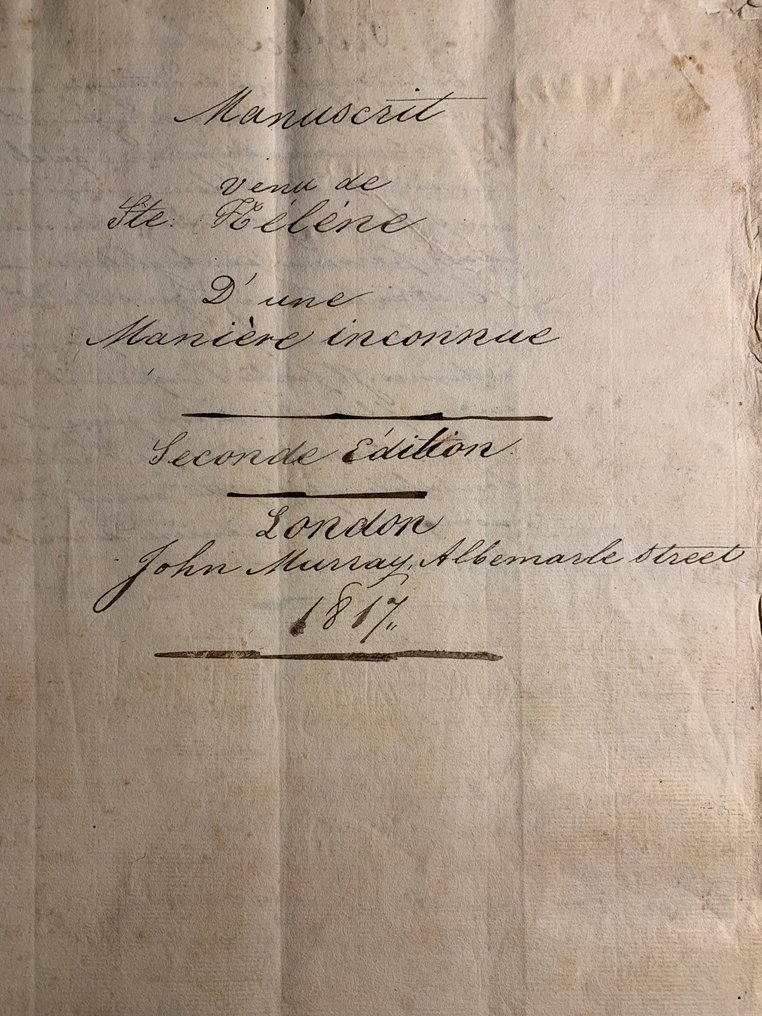 Manuscrit
venu de
Ste: Hélène
D'une
Manière inconnue
Seconde Édition.
London
John Murray, Albemarle Street
1817„